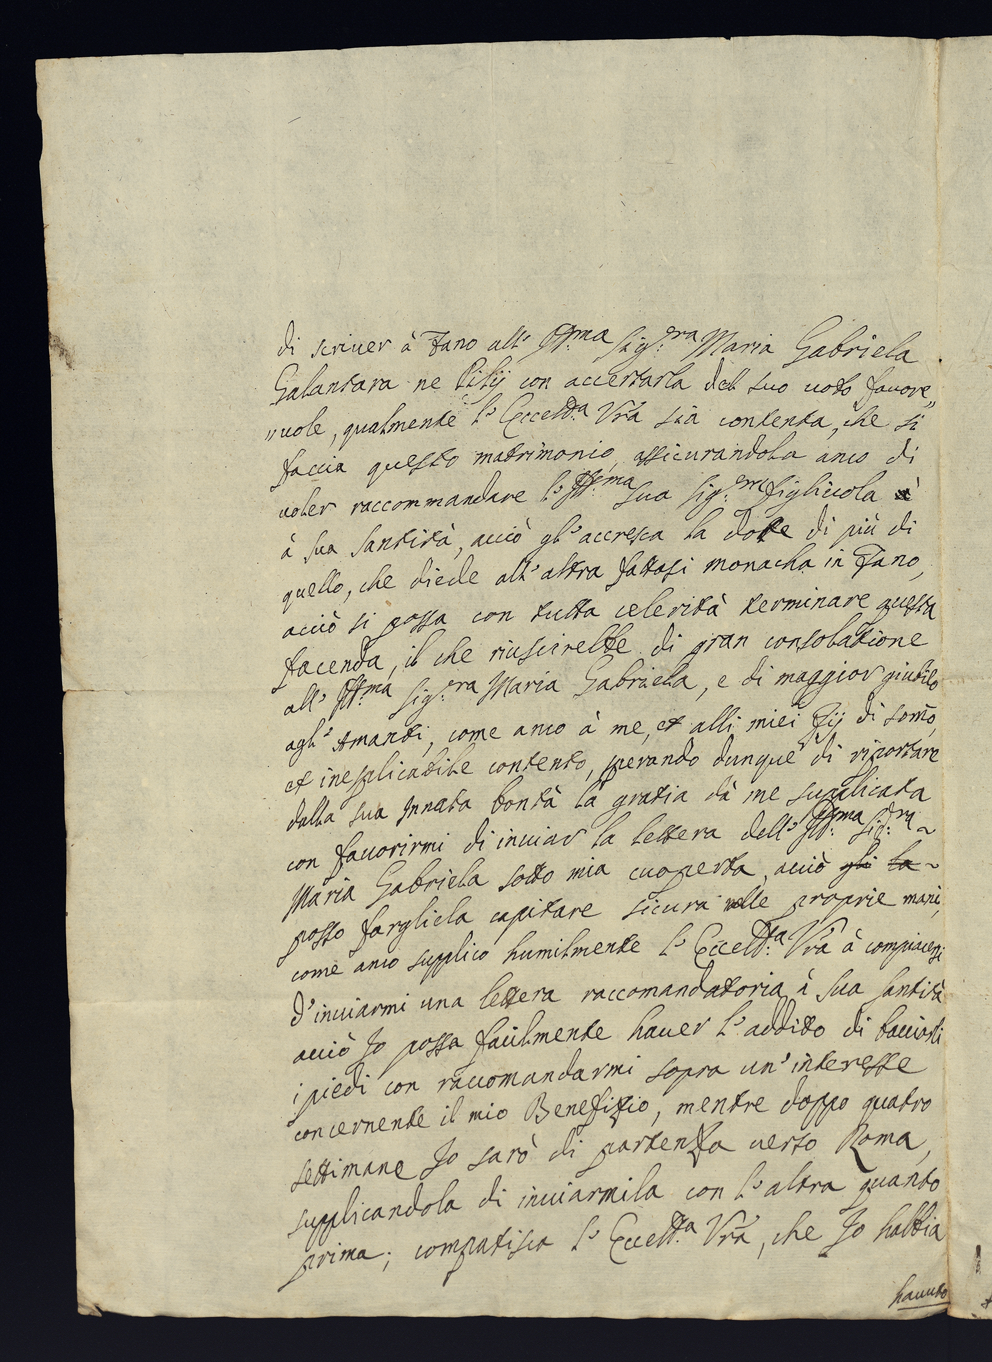 di scriver à Fano all' Ill:ma Sig:ra Maria Gabriela
Galantara ne Pilij con accertarla del suo voto favore„
„uole, qualmente l' Eccell:a Vra sia contenta, che si
faccia questo matrimonio, assicurandola anco di
voler raccommandare l' Ill:ma sua Sig:ra figliuola
à Sua Santità, acciò gl' accresca la dote di più di
quello, che diede all' altra fattasi monacha in Fano,
acciò si possa con tutta celerità terminare questa
facenda, il che riuscirebbe di gran consolatione
all' Ill:ma Sig:ra Maria Gabriela, e di maggior giubilo
agl' Amanti, come anco à me, et alli miei Zij di som̃o,
et inesplicabile contento, sperando dunque di riportare
dalla sua Innata bontà la gratia dà me supplicata
con favorirmi di inviar la lettera dell' Ill:ma Sig:ra ~
Maria Gabriela sotto mia cuoperta, acciò gli la ~
posso fargliela capitare sicura nelle proprie mani,
come anco supplico humilmente l' Eccell:a Vra à compiacersi
d' inviarmi una lettera raccomandatoria à Sua Santità
acciò Io possa facilmente haver l' addito di bacciarli
i piedi con raccomandarmi sopra un' interesse
concernente il mio Benefizio, mentre doppo quatro
settimane Io sarò di partenza verso Roma,
supplicandola di inviarmila con l' altra quanto
prima; compatisca l' Eccell:a Vra, che Io habbia
havuto